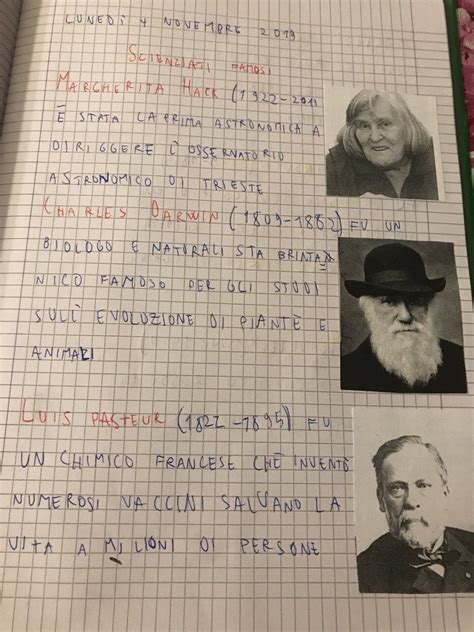 LUNEDÌ 4 NOVEMBRE 2019
SCIENZIATI FAMOSI
MARGHERITA HACK (1922-201
È STATA LA PRIMA ASTRONOMICA A
DIRIGGERE L'OSSERVATORIO
ASTRONOMICO DI TRIESTE
CHARLES DARWIN (1809-1882) FU UN
BIOLOGO E NATURALISTA BRITAN
NICO FAMOSO PER GLI STUDI
SULL'EVOLUZIONE DI PIANTE E
ANIMALI
LUIS PASTEUR (1822-1895) FU
UN CHIMICO FRANCESE CHE INVENTÒ
NUMEROSI VACCINI SALVANO LA
VITA A MILIONI DI PERSONE